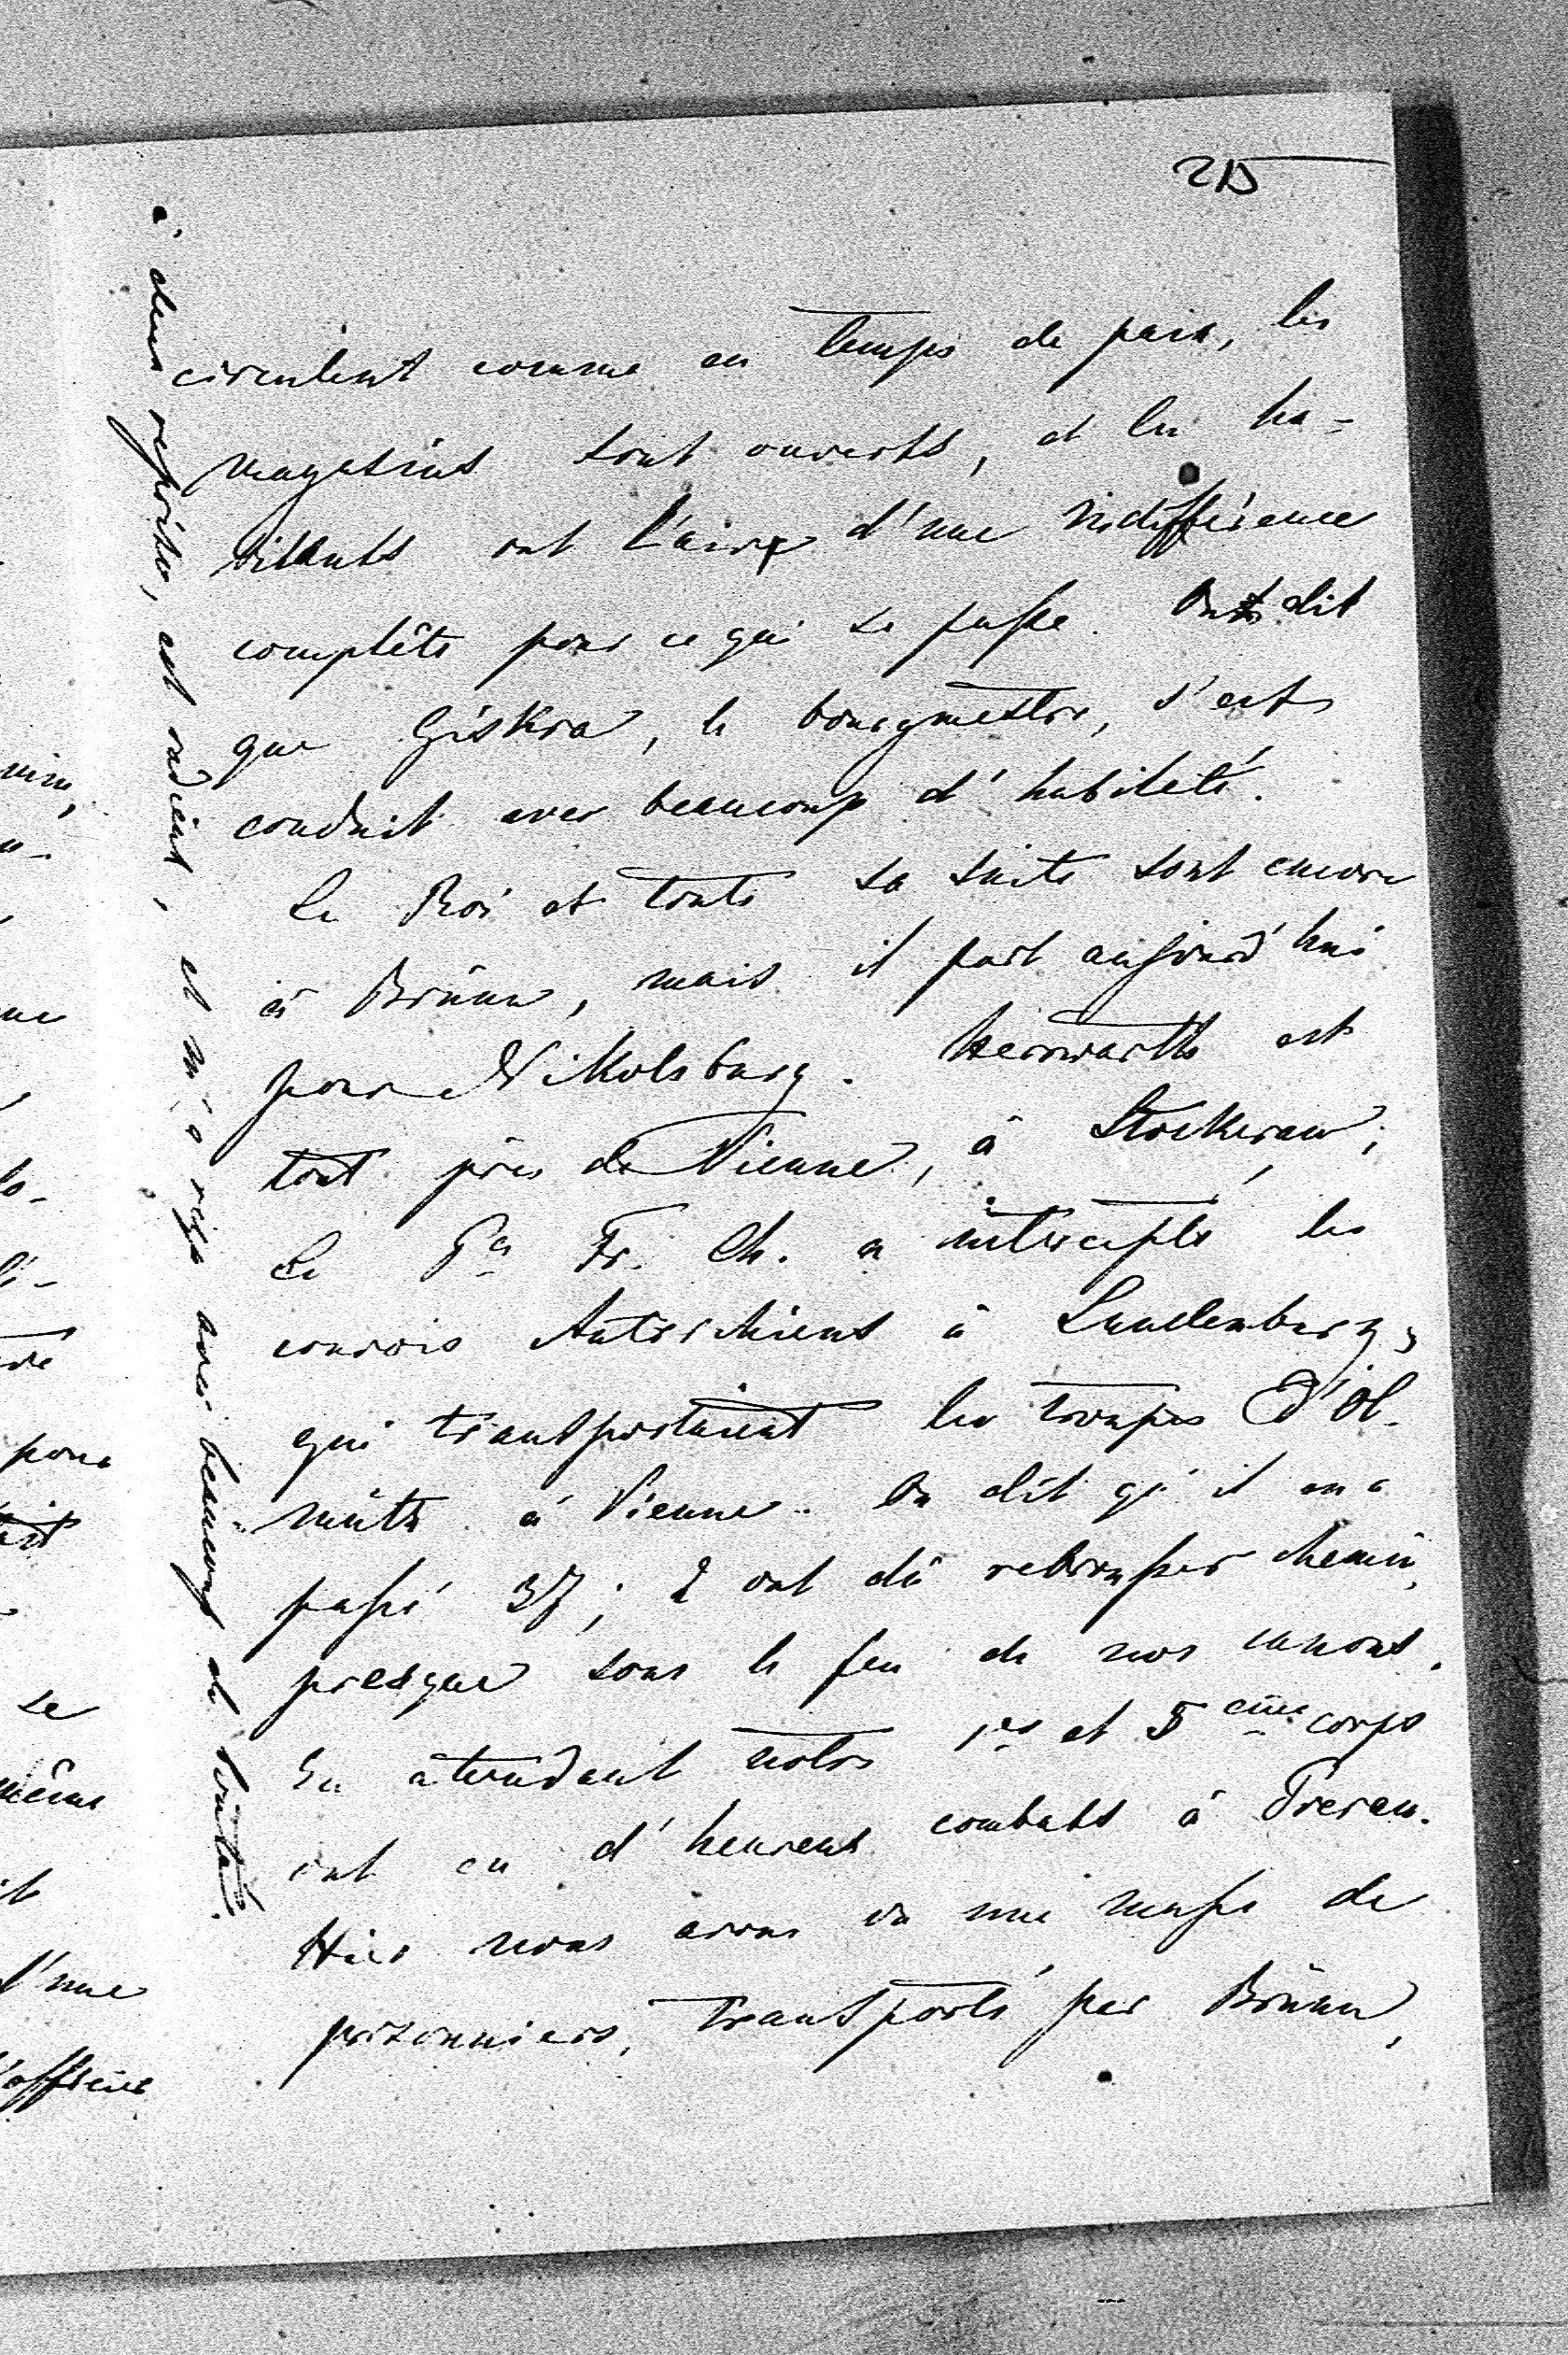 215
circulent comme en temps de paix, les
magasins sont ouverts, et les ha-
bitants ont l'aire d'une indifférence
complête pour ce qui se passe. On dit
que Giskra, le bourgmestre, s'est
conduit avec beaucoup d'habileté.
Le Roi et toute sa suite sont encore
à Brünn, mais il part aujourd'hui
pour Nikolsburg. Herwarth est
tout près de Vienne, à Stockerau;
Le Pce Fr. Ch. a intercepté les
convois Autrichiens à Lundenburg,
qui transportaient les troupes d'Ol-
mütz à Vienne. On dit qu'il en a
passé 37; 2 ont dû rebrousser chemin,
presque sous le feu de nos canons.
En attendant notre 1er et 5ème corps
ont eu d'heureux combats à Prerau.
Hier nous avons vu une masse de
prisonniers, transporté par Brünn,
à deux reprises, est radieux, et m'a reçu avec beaucoup de bonté.
pour
se
même
d'une